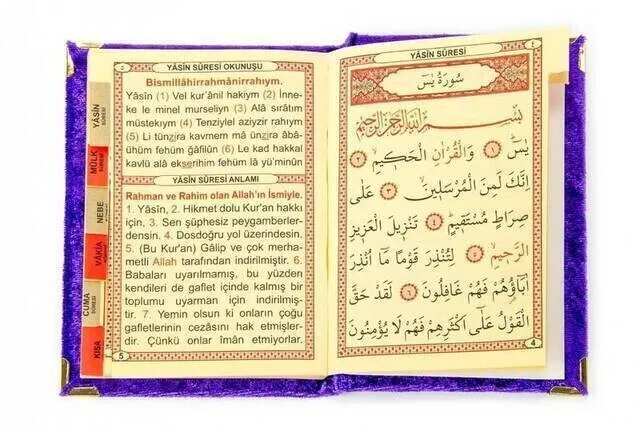 YÂSİN SÛRESİ OKUNUŞU
Bismillâhirrahmânirrahıym.
Yâsîn (1) Vel kur'ânil hakiym (2) İnne-
ke le minel murseliyn (3) Alâ sırâtım
müstekıym (4) Tenziylel aziyzir rahıym
(5) Li tünzira kavmem mâ ünzira âbâ-
ühüm fehüm gâfilûn (6) Le kad hakkal
kavlü alâ ekserihim fehüm lâ yü'minûn
YÂSİN SÛRESİ ANLAMI
Rahman ve Rahim olan Allah'ın İsmiyle.
1. Yâsîn, 2. Hikmet dolu Kur'an hakkı
için, 3. Sen şüphesiz peygamberler-
densin. 4. Dosdoğru yol üzerindesin.
5. (Bu Kur'an) Gâlip ve çok merha-
metli Allah tarafından indirilmiştir. 6.
Babaları uyarılmamış, bu yüzden
kendileri de gaflet içinde kalmış bir
toplumu uyarman için indirilmiş-
tir. 7. Yemin olsun ki onların çoğu
gafletlerinin cezasını hak etmişler-
dir. Çünkü onlar îmân etmiyorlar.
5
YÂSİN
SÛRESİ
MÜLK
SÛRESİ
NEBE
SÛRESİ
VÂKIA
SÛRESİ
CUMA
SÛRESİ
KISA
YÂSİN SÛRESİ
٤
سُورَةُ يٰسٓ
بِسْمِ اللّٰهِ الرَّحْمٰنِ الرَّحِيمِ
يٰسٓ ﴿١﴾ وَالْقُرْاٰنِ الْحَك۪يمِۙ ﴿٢﴾
اِنَّكَ لَمِنَ الْمُرْسَل۪ينَۙ ﴿٣﴾ عَلٰى
صِرَاطٍ مُسْتَق۪يمٍۜ ﴿٤﴾ تَنْز۪يلَ الْعَز۪يزِ
الرَّح۪يمِۙ ﴿٥﴾ لِتُنْذِرَ قَوْمًا مَٓا اُنْذِرَ
اٰبَٓاؤُ۬هُمْ فَهُمْ غَافِلُونَ ﴿٦﴾ لَقَدْ حَقَّ
الْقَوْلُ عَلٰٓى اَكْثَرِهِمْ فَهُمْ لَا يُؤْمِنُونَ
4